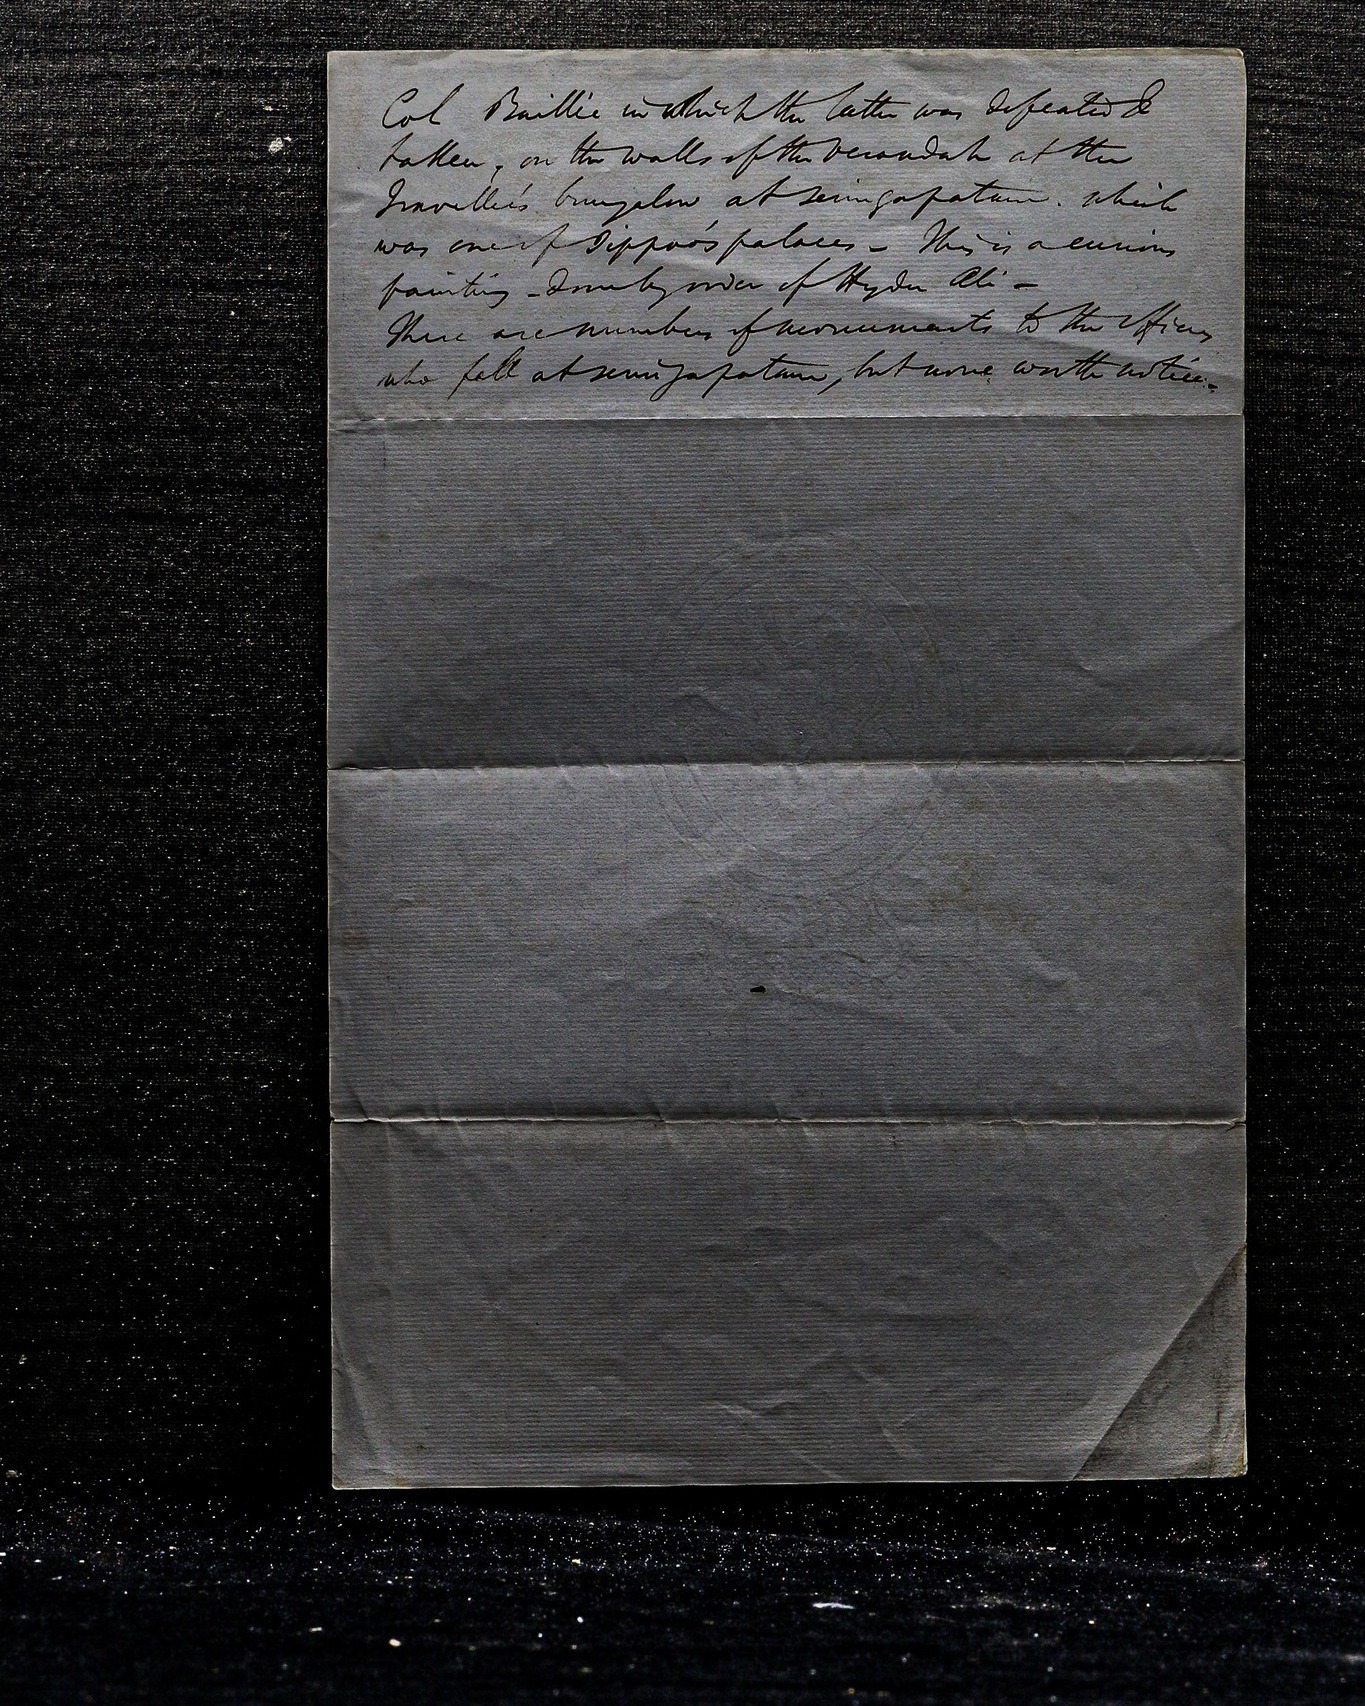 Col Baillie in which the latter was defeated &
taken, on the walls of the verandah at the
Traveller's bungalow at Seringapatam. which
was one of Tippoo's palaces - This is a curious
painting - done by order of Hyder Ali -
There are numbers of monuments to the officers
who fell at Seringapatam, but none worth notice. -